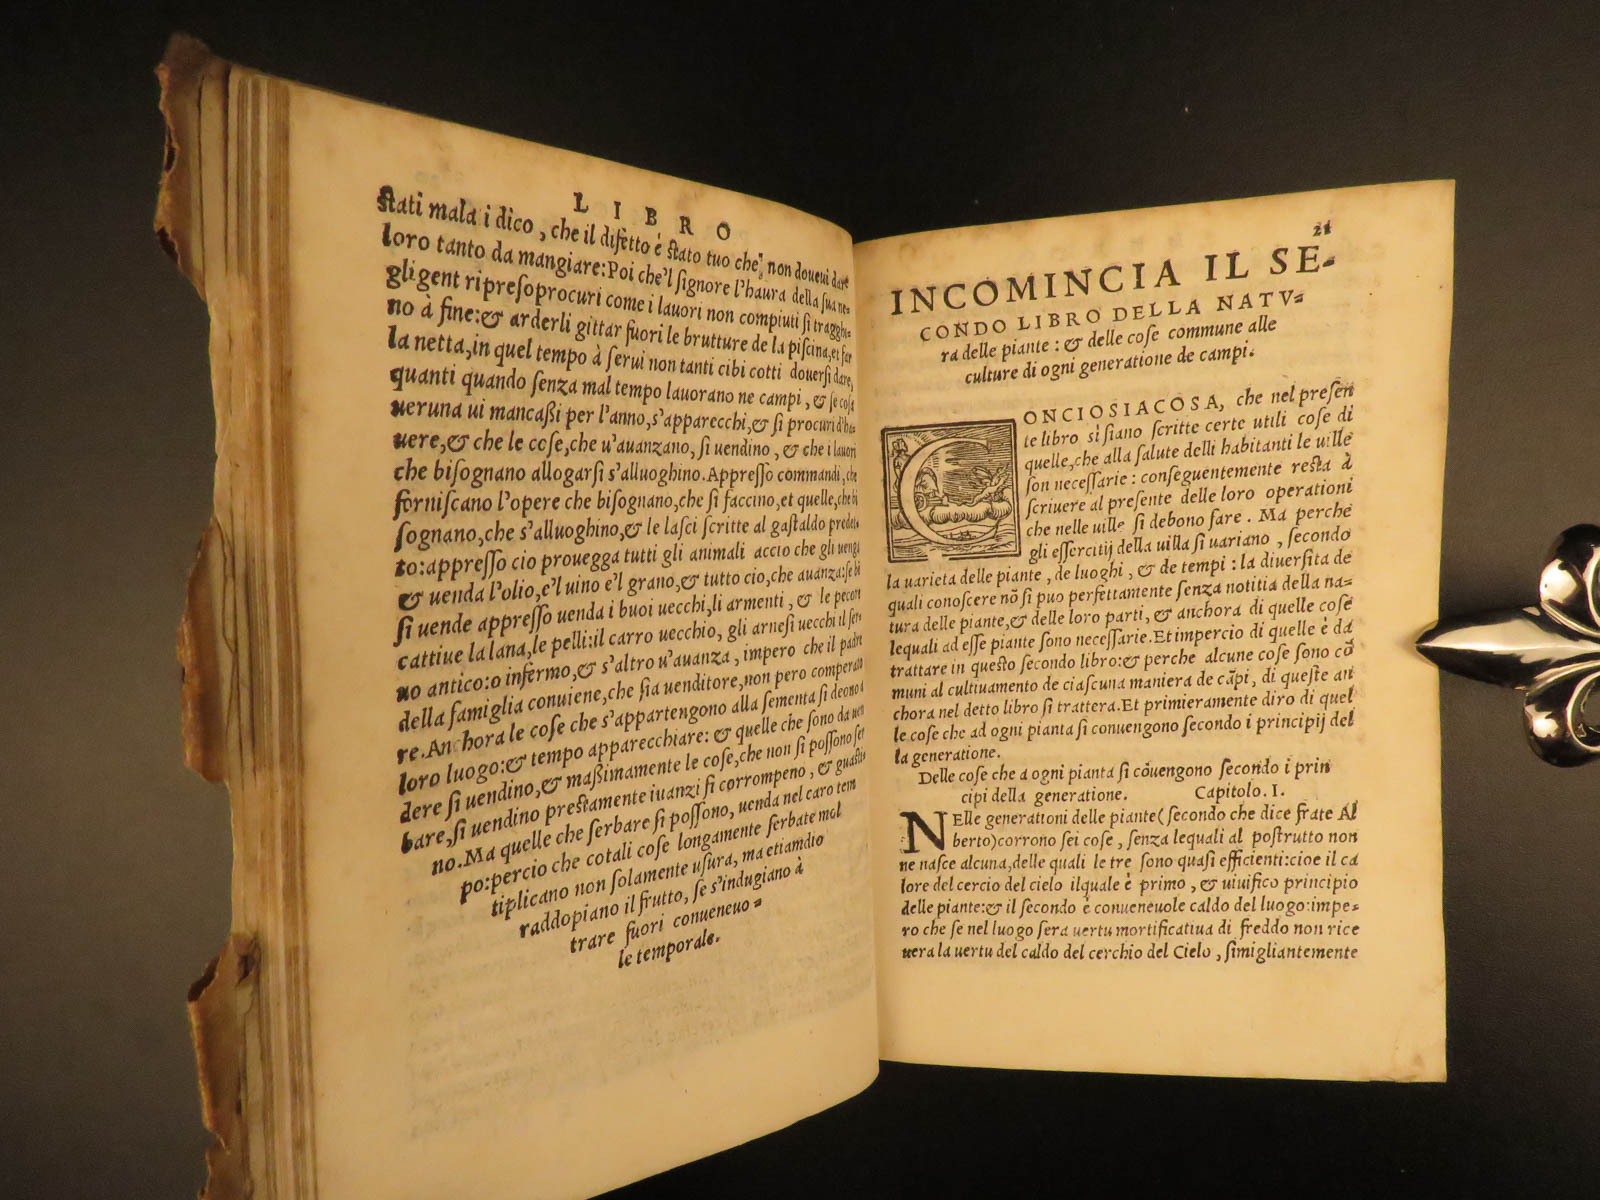 LIBRO
stati mala i dico, che il difetto è stato tuo che, non doueui dare
loro tanto da mangiare: Poi che'l signore l'haura della sua ne-
gligent ripresoprocuri come i lauori non compiuti si tragghi-
no à fine: & arderli gittar fuori le brutture de la piscina, et far
la netta, in quel tempo à serui non tanti cibi cotti douersi dare,
quanti quando senza mal tempo lauorano ne campi, & se cosa
ueruna ui mancaßi per l'anno, s'apparecchi, & si procuri d'ha-
uere, & che le cose, che u'auanzano, si uendino, & che i lauori
che bisognano allogarsi s'alluoghino. Appresso commandi, che
forniscano l'opere che bisognano, che si faccino, et quelle, che bi
sognano, che s'alluoghino, & le lasci scritte al gastaldo predet-
to: appresso cio prouegga tutti gli animali accio che gli uenga
& uenda l'olio, e'l uino e'l grano, & tutto cio, che auanza: se bi
si uende appresso uenda i buoi uecchi, li armenti, & le pecore
cattiue la lana, le pelli: il carro uecchio, gli arnesi uecchi il ser-
uo antico: o infermo, & s'altro u'auanza, impero che il padre
della famiglia conuiene, che sia uenditore, non pero comperato
re. Anchora le cose che s'appartengono alla sementa si deono à
loro luogo: & tempo apparecchiare: & quelle che sono da uen
dere si uendino, & maßimamente le cose, che non si possono ser
bare, si uendino prestamente iuanzi si corrompeno, & guastin
no. Ma quelle che serbare si possono, uenda nel caro tem
po: percio che cotali cose longamente serbate mol
tiplicano non solamente usura, ma etiamdio
raddopiano il frutto, se s'indugiano à
trare fuori conueneuo=
le temporale.
21
INCOMINCIA IL SE-
CONDO LIBRO DELLA NATV=
ra delle piante: & delle cose commune alle
culture di ogni generatione de campi.
CONCIOSIACOSA, che nel presen
te libro si siano scritte certe utili cose di
quelle, che alla salute delli habitanti le uille
son necessarie: conseguentemente resta à
scriuere al presente delle loro operationi
che nelle uille si debono fare. Ma perche
gli essercitij della uilla si uariano, secondo
la uarieta delle piante, de luoghi, & de tempi: la diuersita de
quali conoscere nõ si puo perfettamente senza notitia della na=
tura delle piante, & delle loro parti, & anchora di quelle cose
lequali ad esse piante sono necessarie. Et impercio di quelle è da
trattare in questo secondo libro: & perche alcune cose sono cõ
muni al cultiuamento de ciascuna maniera de cãpi, di queste an
chora nel detto libro si trattera. Et primieramente diro di quel
le cose che ad ogni pianta si conuengono secondo i principij del
la generatione.
Delle cose che a ogni pianta si cõuengono secondo i prin
cipi della generatione. Capitolo. I.
NElle generationi delle piante (secondo che dice frate Al
berto) corrono sei cose, senza lequali al postrutto non
ne nasce alcuna, delle quali le tre sono quasi efficienti: cioe il ca
lore del cercio del cielo ilquale è primo, & uiuifico principio
delle piante: & il secondo è conueneuole caldo del luogo: impe=
ro che se nel luogo sera uertu mortificatiua di freddo non rice
uera la uertu del caldo del cerchio del Cielo, similgiantemente